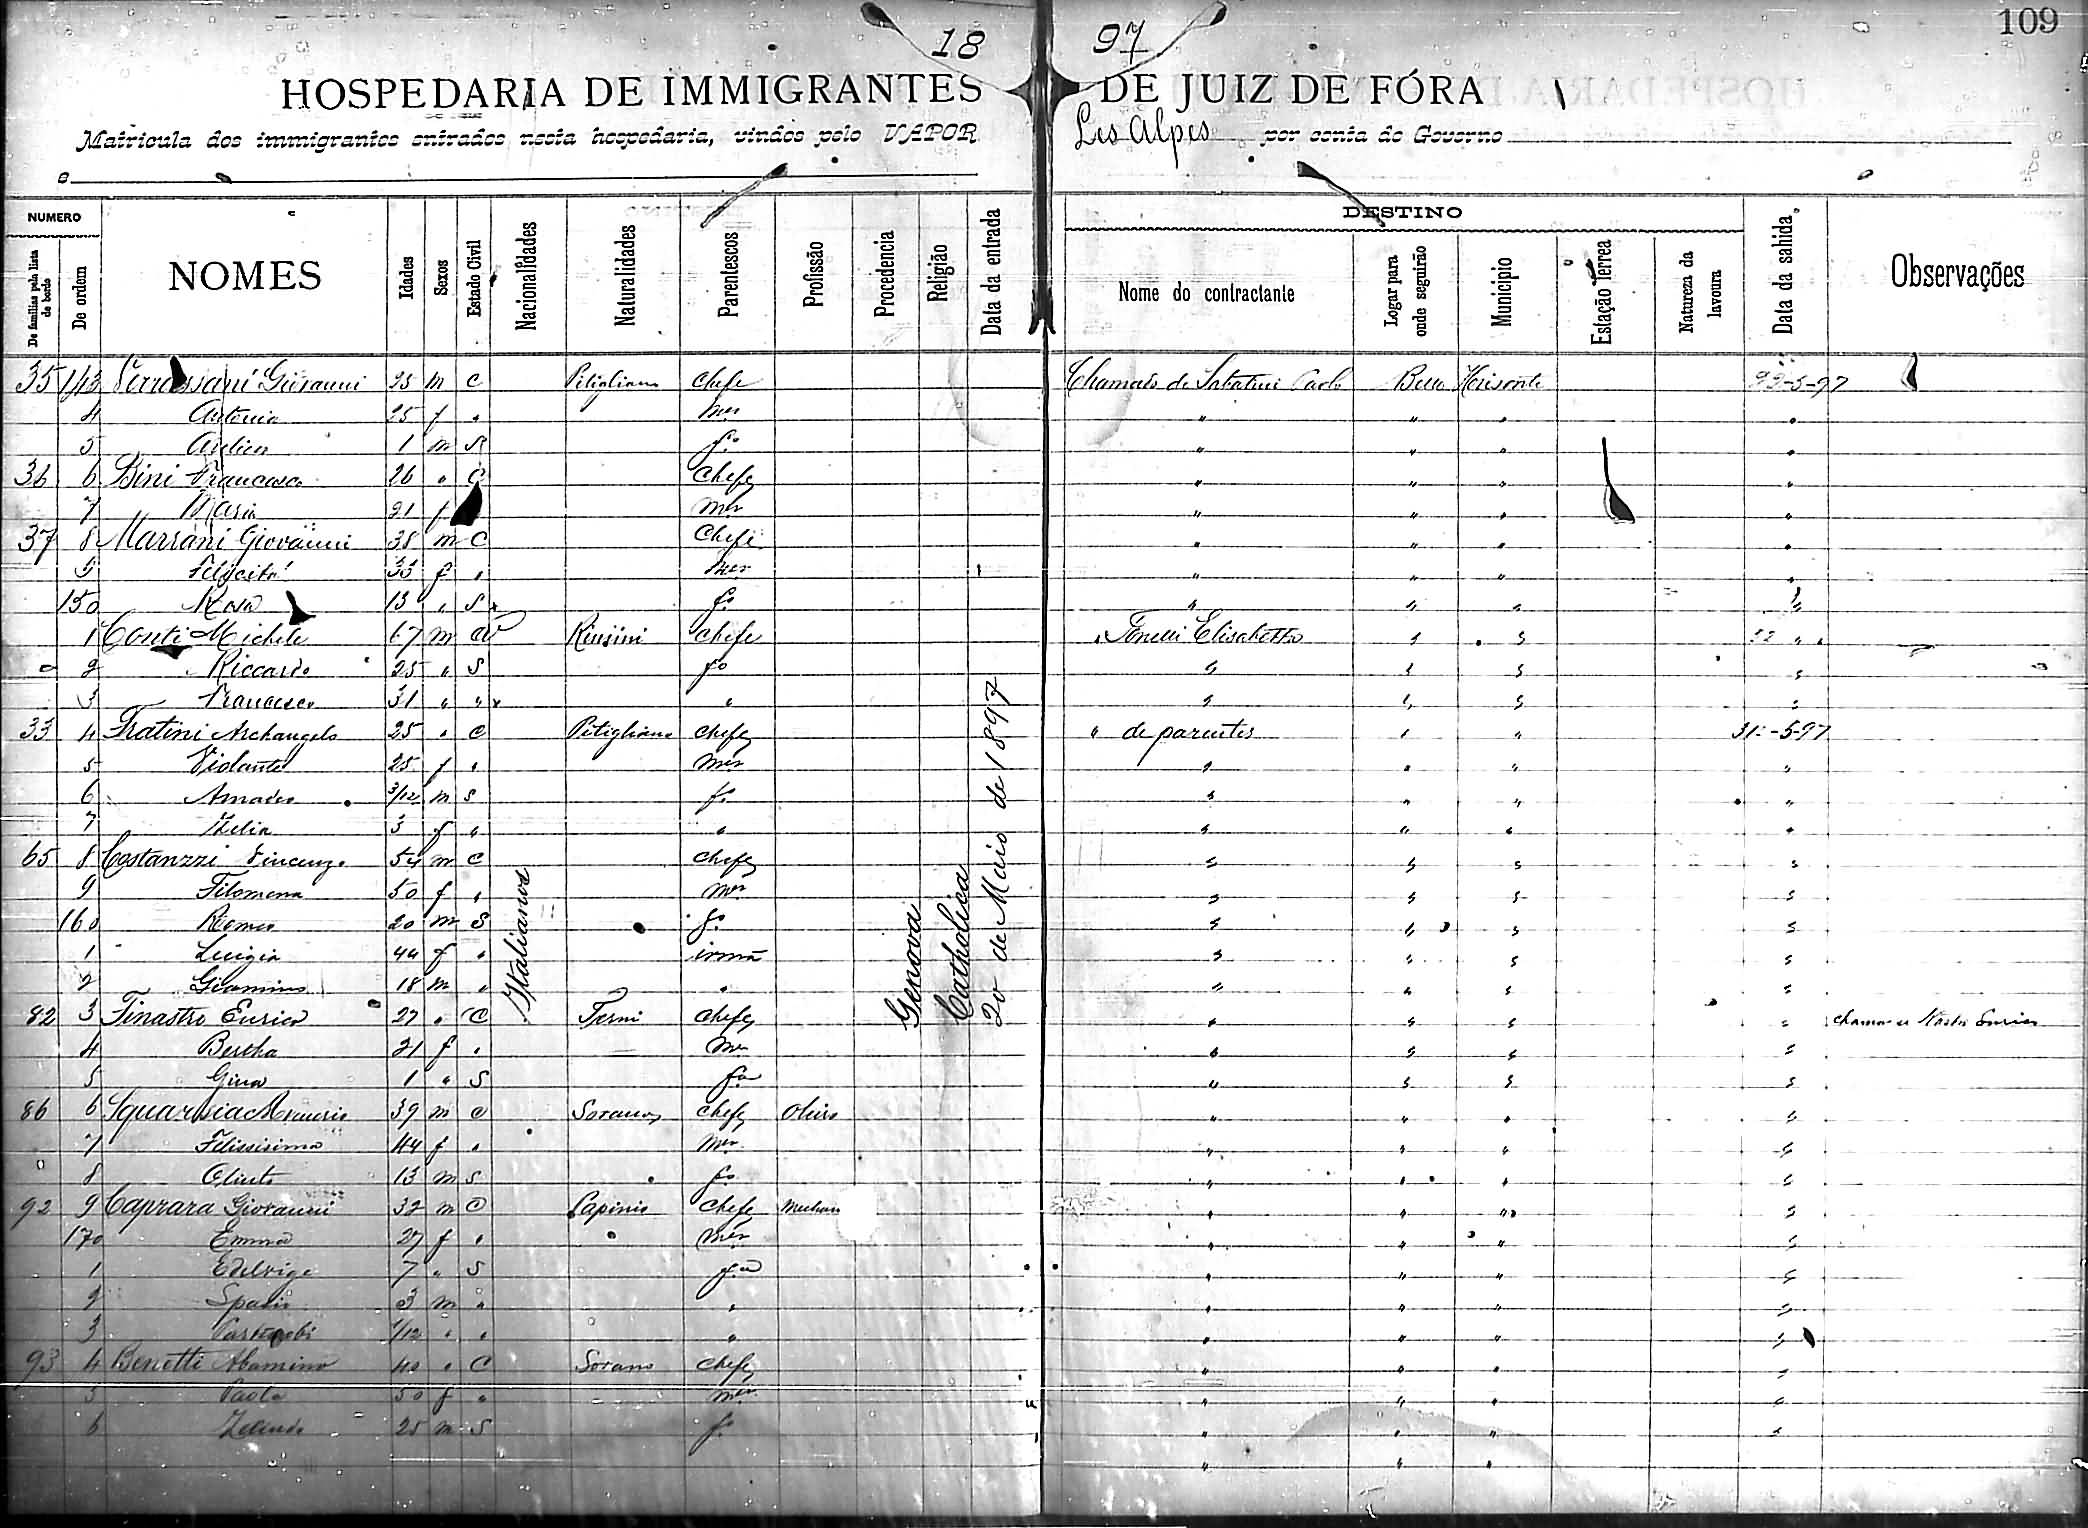 109
18 97
HOSPEDARIA DE IMMIGRANTES DE JUIZ DE FÓRA
Matricula dos immigrantes entrados nesta hospedaria, vindos pelo VAPOR Les Alpes por conta do Governo
NUMERO
De familias pela lista de bordo
De ordem
NOMES
Idades
Sexos
Estado Civil
Nacionalidades
Naturalidades
Parentescos
Profissão
Procedencia
Religião
Data da entrada
DESTINO
Nome do contractante
Logar para onde seguirão
Municipio
Estação ferrea
Natureza da lavoura
Data da sahida
Observações
35 143 Giovanni 25 m C Pitigliano Chefe Chamado de Sabatini Paolo Bello Horisonte -5-97
4 Antonia 25 f " mer " " " "
5 1 m S fo " " " "
36 6 Bini Francesco 26 " C Chefe " " " "
7 Maria 21 f mer " " " "
37 8 Marsani Giovanni 38 m C Chefe " " " "
9 Felicitá 33 f " mer " " " "
150 Rosa 13 " S fo " " " "
1 Conti Michele 67 m Rimini Chefe " Elisabetta " " "
2 Riccardo 25 " S fo " " " "
3 Francesco 31 " " " " " " "
33 4 Fratini Archangelo 25 " C Pitigliano Chefe " de parentes " " 31-5-97
5 Violante 25 f " mer " " " "
6 Amadeo 3/12 m S fo " " " "
7 Zelia 3 f " " " " " "
65 8 Costanzzi Vincenzo 54 m C Chefe " " " "
9 Filomena 50 f " mer " " " "
160 Romeo 20 m S fo " " " "
1 Luigia 44 f " irmã " " " "
2 18 m " " " " " "
82 3 Finastro Enrico 27 " C Terni Chefe " " " "
4 Bertha 21 f " mer " " " "
5 Gina 1 " S fa " " " "
86 6 39 m C Sorano Chefe " " " "
7 Filissisima 44 f " mer " " " "
8 Olinto 13 m S fo " " " "
92 9 Caprara Giovanni 32 m C Chefe " " " "
170 Emma 27 f " mer " " " "
1 Edelvige 7 " S fa " " " "
2 3 m " " " " " "
3 1/12 " " " " " " "
93 4 Benotti 40 " C Sorano Chefe " " " "
5 Paola 50 f " mer " " " "
6 25 m S fo " " " "
" " "
Italianos
Genova
Catholica
20 de Maio de 1897